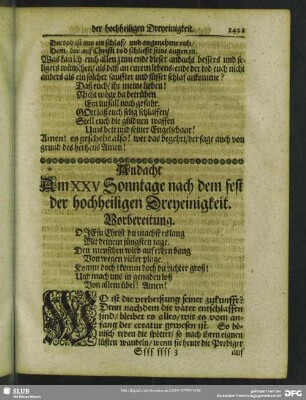 der hochheiligen Dreyeinigkeit. 1421
Der tod ist nur ein schlaf/ und angenehme ruh/
Dem/ der auf Christi tod schliest seine augen zu.
Was kan ich euch allen zum ende dieser andacht bessers und se-
ligers wünschen/ als daß an eurem lebens-ende der tod euch nicht
anders als ein solcher sanffter und süsser schlaf ankomme?
Daß euch/ ihr meine lieben!
Nicht möge da betrüben
Ein unfall noch gefahr.
GOtt laß euch selig schlaffen/
Stell euch die güldnen waffen
Ums bett und seiner Engelschaar!
Amen! es geschehe also! wer das begehrt/ der sage auch von
grund des hertzens Amen!
Andacht
Am XXV Sonntage nach dem fest
der hochheiligen Dreyeinigkeit.
Vorbereitung.
O JEsu Christ du machst es lang
Mit deinem jüngsten tage.
Den menschen wird auf erden bang
Von wegen vieler plage.
Komm doch! komm doch du richter groß!
Und mach uns in genaden loß
Von allem übel! Amen!
WO ist die verheißung seiner zukunfft?
Denn nachdem die väter entschlaffen
sind/ bleibet es alles/ wie es vom an-
fang der creatur gewesen ist. So hö-
nisch reden die spötter/ so nach ihren eigenen
lüsten wandeln/ wenn sie heute die Prediger
Sfff ffff 3 auf